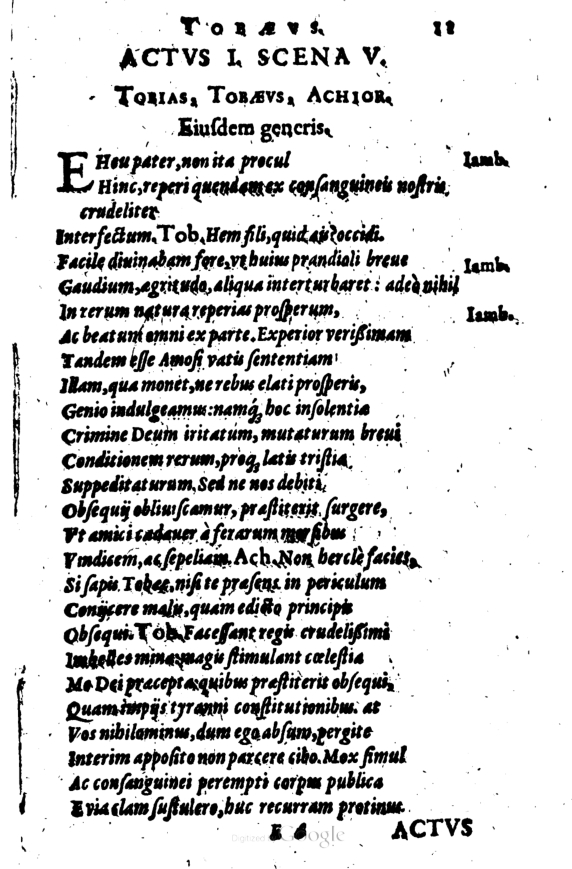 TOBÆVS. 11
ACTVS I. SCENA V.
TOBIAS, TOBÆVS, ACHIOR.
Eiuſdem generis.
EHeu pater, non ita procul Iamb.
Hinc, reperi quendam ex conſanguineis noſtris,
crudeliter
Interfectum. Tob. Hem fili, quid ais? occidi.
Facile diuinabam fore, vt huius prandioli breue Iamb.
Gaudium, ægritudo, aliqua interturbaret: adeò nihil
In rerum natura reperias proſperum, Iamb.
Ac beatum omni ex parte. Experior verißimam
Tandem eſſe Amoſi vatis ſententiam
Illam, qua monet, ne rebus elati proſperis,
Genio indulgeamus: namq́; hoc inſolentiæ
Crimine Deum iritatum, mutaturum breui
Conditionem rerum, proq; latis triſtia
Suppeditaturum. Sed ne nos debiti
Obſequij obliuiſcamur, præſtiterit ſurgere,
Vt amici cadauer à ferarum morſibus
Vindicem, ac ſepeliam. Ach. Non herclè facies,
Si ſapis Tobæe, niſi te præſens in periculum
Conijcere malis, quam edicto principis
Obſequi. Tob. Faceſſant regis crudelißimi
Imbelles minæ: magis ſtimulant cœleſtia
Me Dei præcepta: quibus præſtiterit obſequi,
Quam impijs tyranni conſtitutionibus. at
Vos nihilominus, dum ego abſum, pergite
Interim appoſito non parcere cibo. Mox ſimul
Ac conſanguinei perempti corpus publica
E via clam ſuſtulero, huc recurram protinus.
ACTVS
Digitized by Google